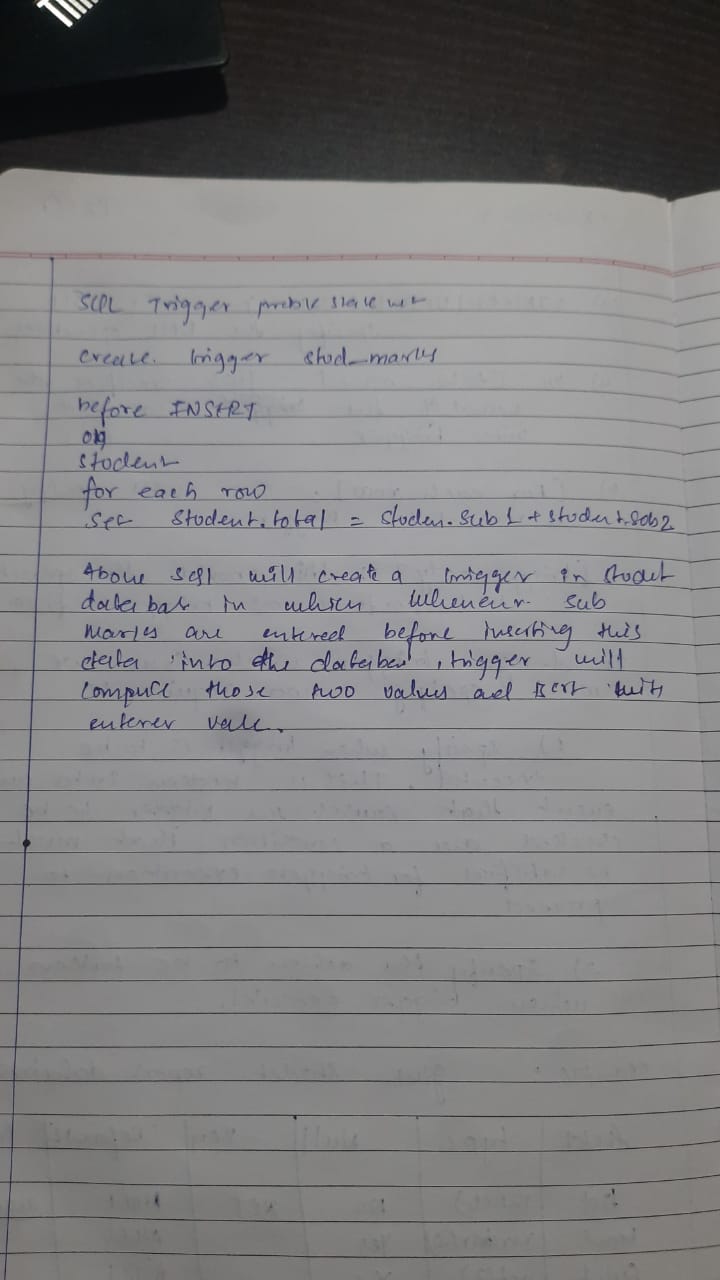 Thin
SQL Trigger proble statemet
create trigger stud_marks
before INSERT
on
student
for each row
set student.total = studen.sub1 + student.sub2
Above sql will create a trigger in studet
database in which whenever sub
marks are entered before inserting this
data into the databas, trigger will
compute those two values and with
enterer value.